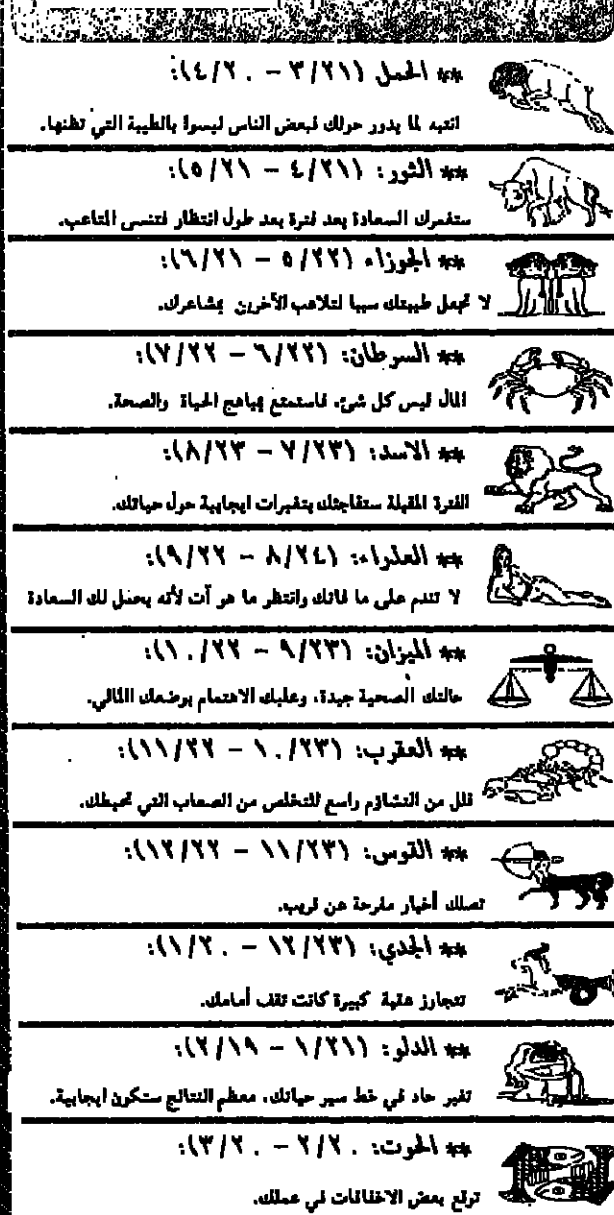 ** الحمل (٣/٢١ - ٤/٢٠):
انتبه لما يدور حولك فبعض الناس ليسوا بالطيبة التي تظنها.
** الثور: (٤/٢١ - ٥/٢١):
ستغمرك السعادة بعد فترة بعد طول انتظار فتنسى المتاعب.
** الجوزاء (٥/٢٢ - ٦/٢١):
لا تجعل طيبتك سببا لتلاعب الآخرين بمشاعرك.
** السرطان: (٦/٢٢ - ٧/٢٢):
المال ليس كل شئ، فاستمتع بمباهج الحياة والصحة.
** الاسد: (٧/٢٣ - ٨/٢٣):
الفترة المقبلة ستفاجئك بتغيرات ايجابية حول حياتك.
** العذراء: (٨/٢٤ - ٩/٢٢):
لا تندم على ما فاتك وانتظر ما هو آت لأنه يحمل لك السعادة
** الميزان: (٩/٢٣ - ١٠/٢٢):
حالتك الصحية جيدة، وعليك الاهتمام بوضعك المالي.
** العقرب: (١٠/٢٣ - ١١/٢٢):
قلل من التشاؤم واسع للتخلص من الصعاب التي تحيطك.
** القوس: (١١/٢٣ - ١٢/٢٢):
تصلك أخبار مفرحة عن قريب.
** الجدي: (١٢/٢٣ - ١/٢٠):
تتجاوز عقبة كبيرة كانت تقف أمامك.
** الدلو: (١/٢١ - ٢/١٩):
تغير حاد في خط سير حياتك، معظم النتائج ستكون ايجابية.
** الحوت: ٢/٢٠ - ٣/٢٠):
توقع بعض الاخفاقات في عملك.